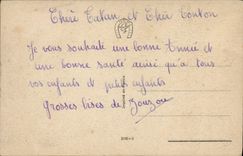 Chère Tatan et Cher Tonton
Je vous souhaite une bonne Année et
une bonne santé ainsi qu'a tous
vos enfants et petits enfants
Grosses bises de